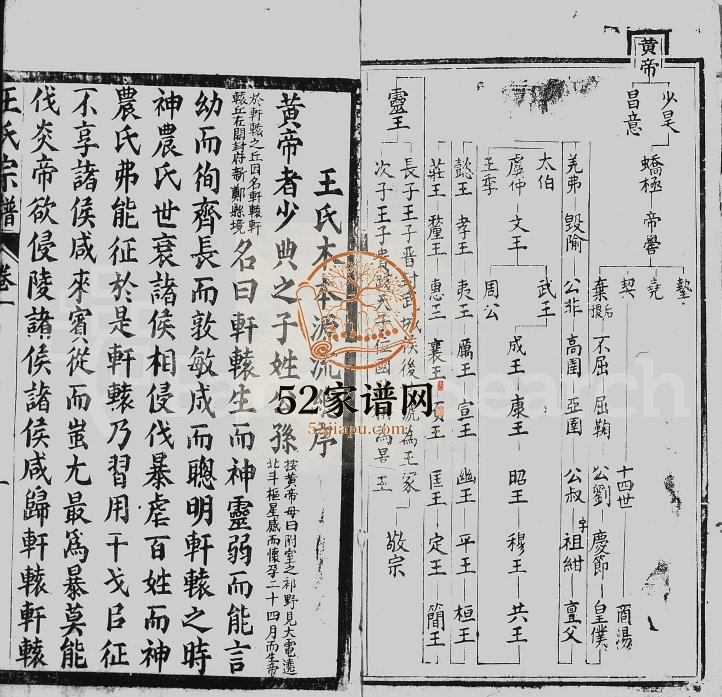 黄帝
少昊
昌意
蟜極 帝嚳
摯
堯
契 十四世 商湯
棄 后稷 不屈 屈鞠 公劉 慶節 皇僕
羌弗 毀隃 公非 高圉 亞圉 公叔 字祖紺 亶父
太伯
虞仲
王季
文王
武王
周公
成王 康王 昭王 穆王 共王
懿王 孝王 夷王 厲王 宣王 幽王 平王 桓王
莊王 釐王 惠王 襄王 頃王 匡王 定王 簡王
靈王
長子王子晉 後 號為王家
次子王子貴 太子 國 為景王
敬宗
王氏本本源流 序
黃帝者少典之子姓公孫 按黃帝母曰附宝之祁野見大電遶北斗樞星感而懷孕二十四月而生帝
於軒轅之丘因名軒轅軒轅丘在開封府新鄭縣境 名曰軒轅生而神靈弱而能言
幼而徇齊長而敦敏成而聰明軒轅之時
神農氏世衰諸侯相侵伐暴虐百姓而神
農氏弗能征於是軒轅乃習用干戈㠯征
不享諸侯咸來賓從而蚩尤最為暴莫能
伐炎帝欲侵陵諸侯諸侯咸歸軒轅軒轅
王氏宗譜 卷一 一
52家谱网
52jiapu.com